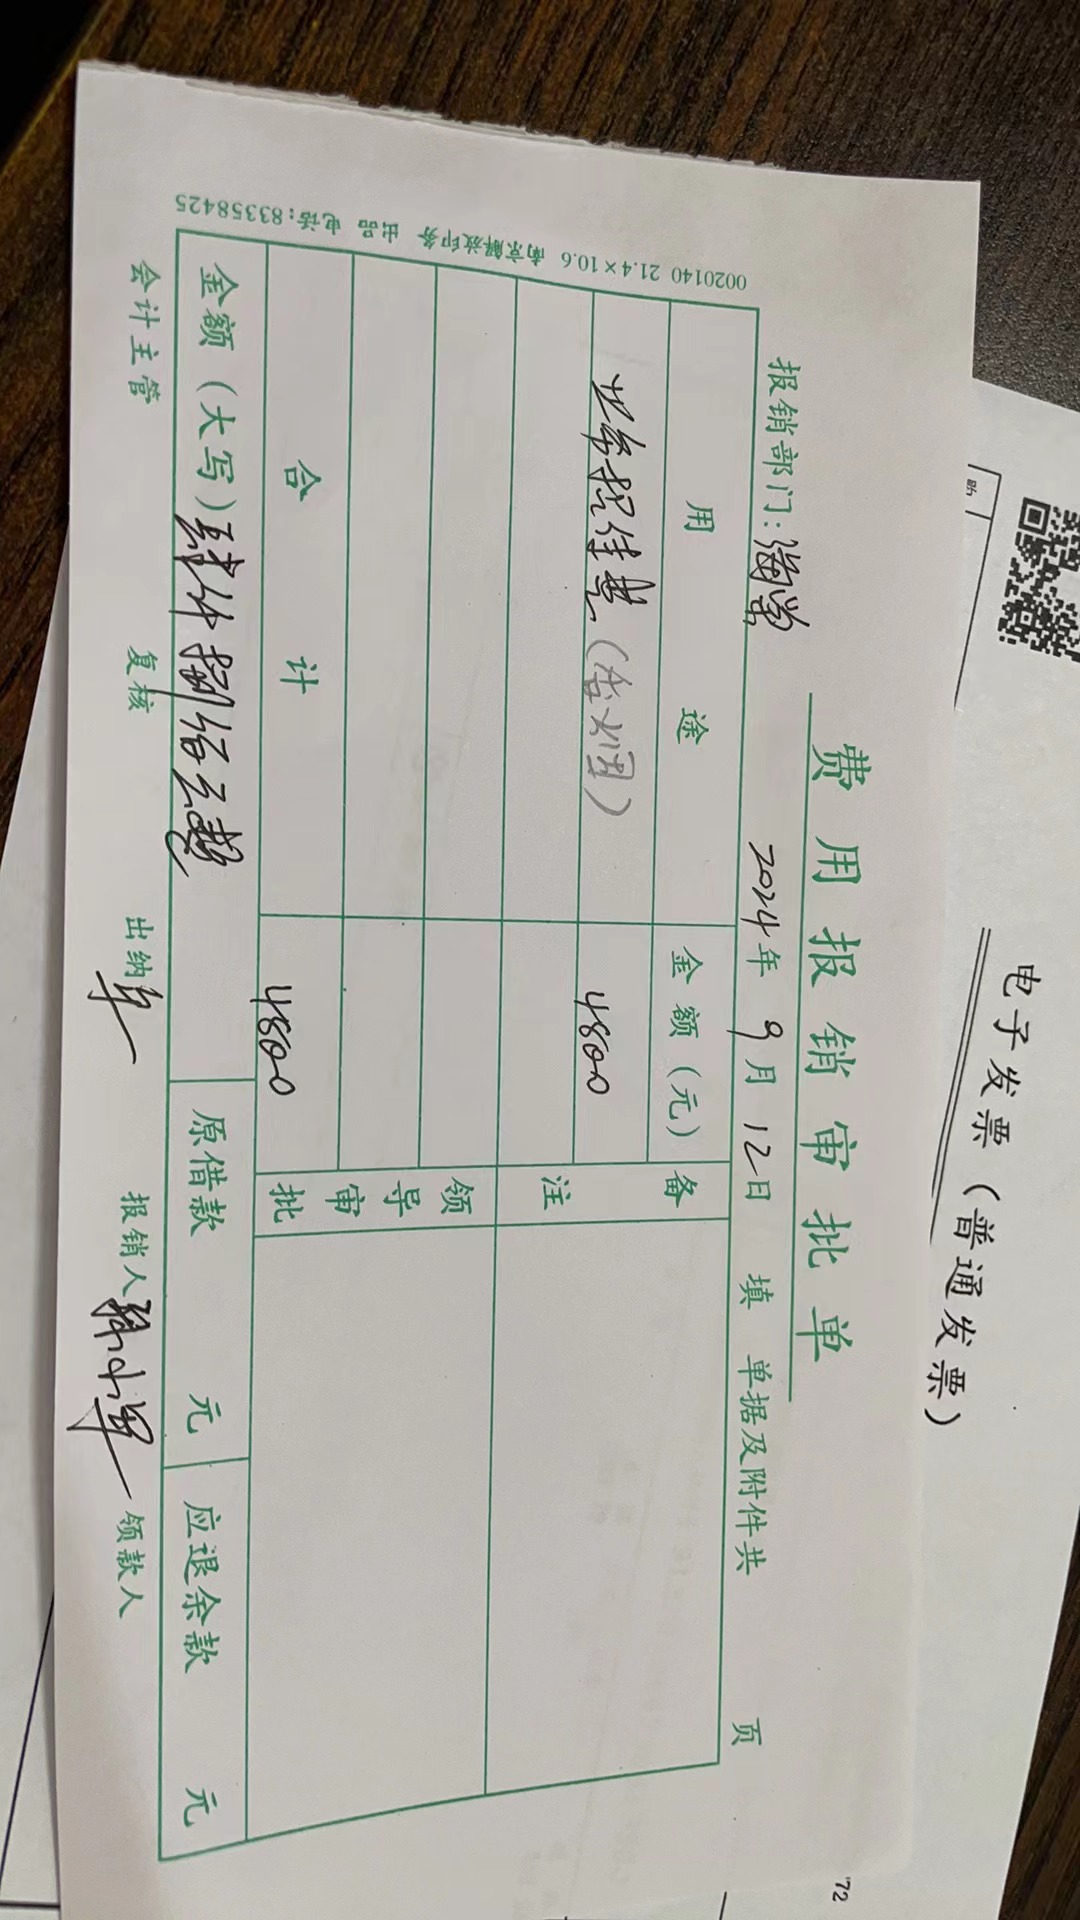 电子发票（普通发票）
费用报销审批单
报销部门：海棠 2024年9月12日填 单据及附件共 页
用途 金额（元） 备注
4800
领导审批
合计 4800
金额（大写）肆仟捌佰元整 原借款 元 应退余款 元
会计主管 复核 出纳 报销人 领款人
0020140 21.4×10.6 南京解放印务 出品 电话：83358425
72